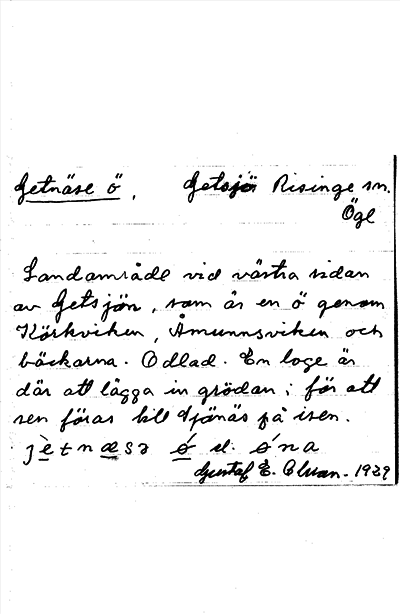 Getnäse ö, Getsjö Risinge sn.
Ögl
Landområde vid västra sidan
av Getsjön, som är en ö genom
Körkviken, Åmunnsviken och
bäckarna. Odlad. En loge är
där att lägga in grödan i för att
sen föras till Djänäs på isen.
jètnæsə ó el. óna
Gustaf E. 1929